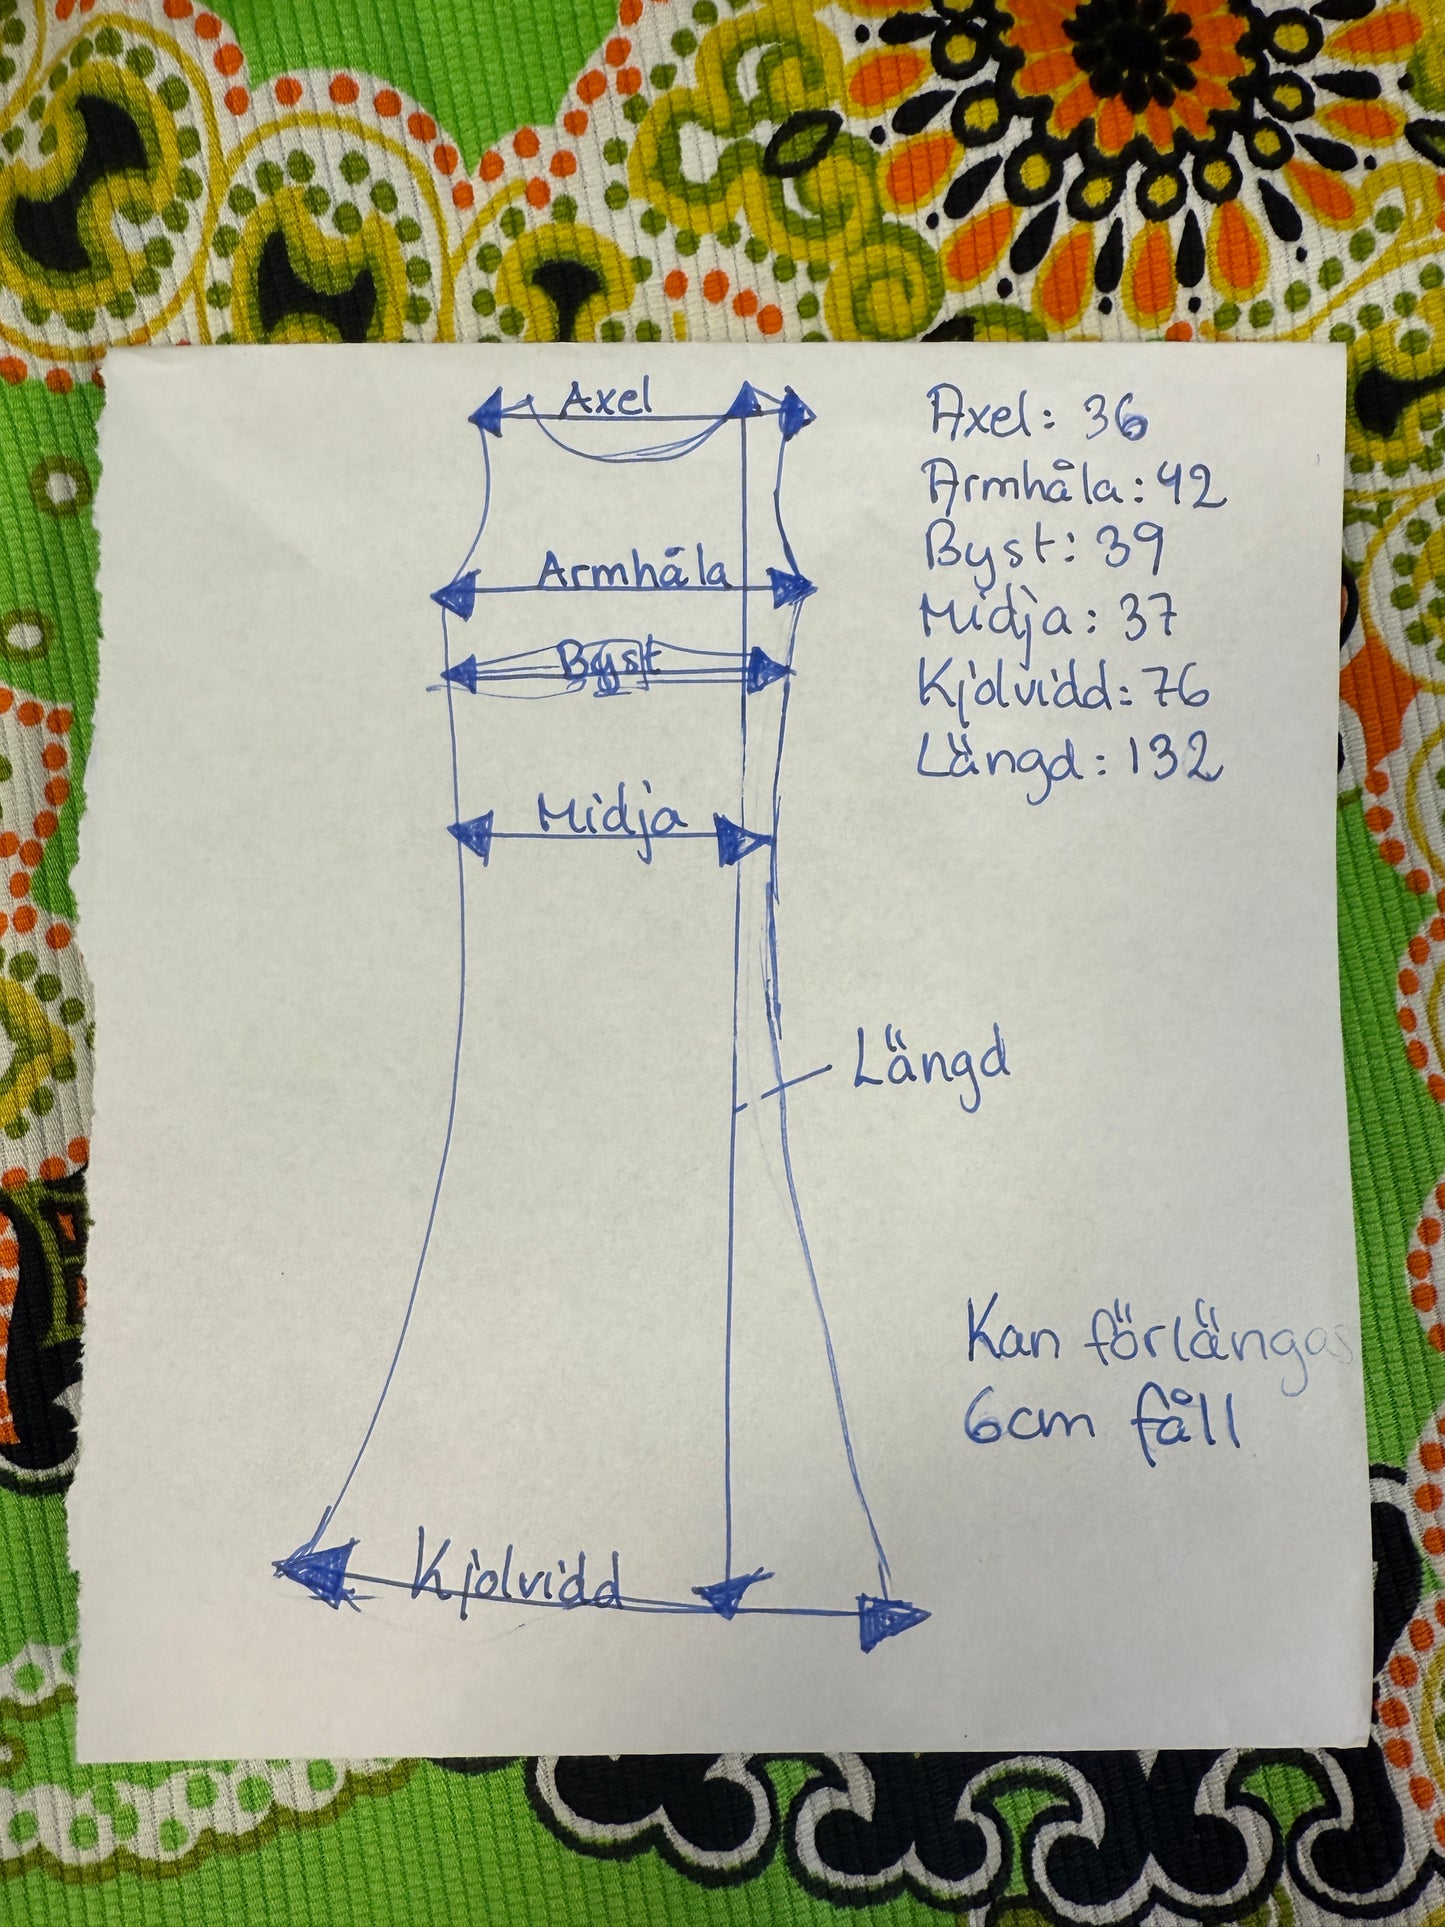 Axel
Armhåla
Byst
Midja
Längd
Kjolvidd
Axel: 36
Armhåla: 42
Byst: 39
Midja: 37
Kjolvidd: 76
Längd: 132
Kan förlängas
6cm fåll